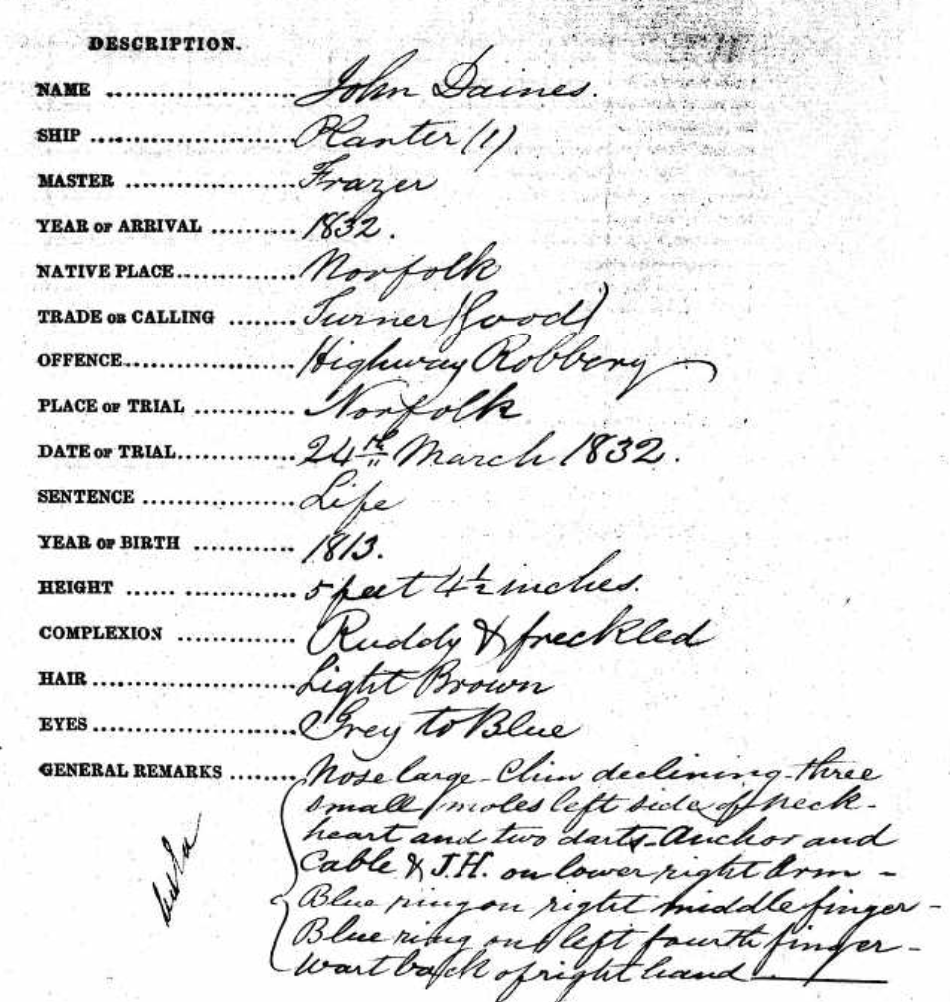 DESCRIPTION.
NAME ........................ John Daines.
SHIP ........................... Planter (1)
MASTER ..................... Frazer
YEAR OF ARRIVAL .......... 1832.
NATIVE PLACE............... Norfolk
TRADE OR CALLING ........ Turner (good)
OFFENCE...................... Highway Robbery
PLACE OF TRIAL ............ Norfolk
DATE OF TRIAL............... 24th March 1832.
SENTENCE .................... Life
YEAR OF BIRTH ............ 1813.
HEIGHT ...... ............... 5 feet 4½ inches.
COMPLEXION ............... Ruddy & freckled
HAIR ........................... Light Brown
EYES............................ Grey to Blue
GENERAL REMARKS ........ Nose large - Chin declining - three
small moles left side of neck -
heart and two darts - Anchor and
Cable & J.H. on lower right arm -
Blue ring on right middle finger -
Blue ring on left fourth finger -
Wart back of right hand.